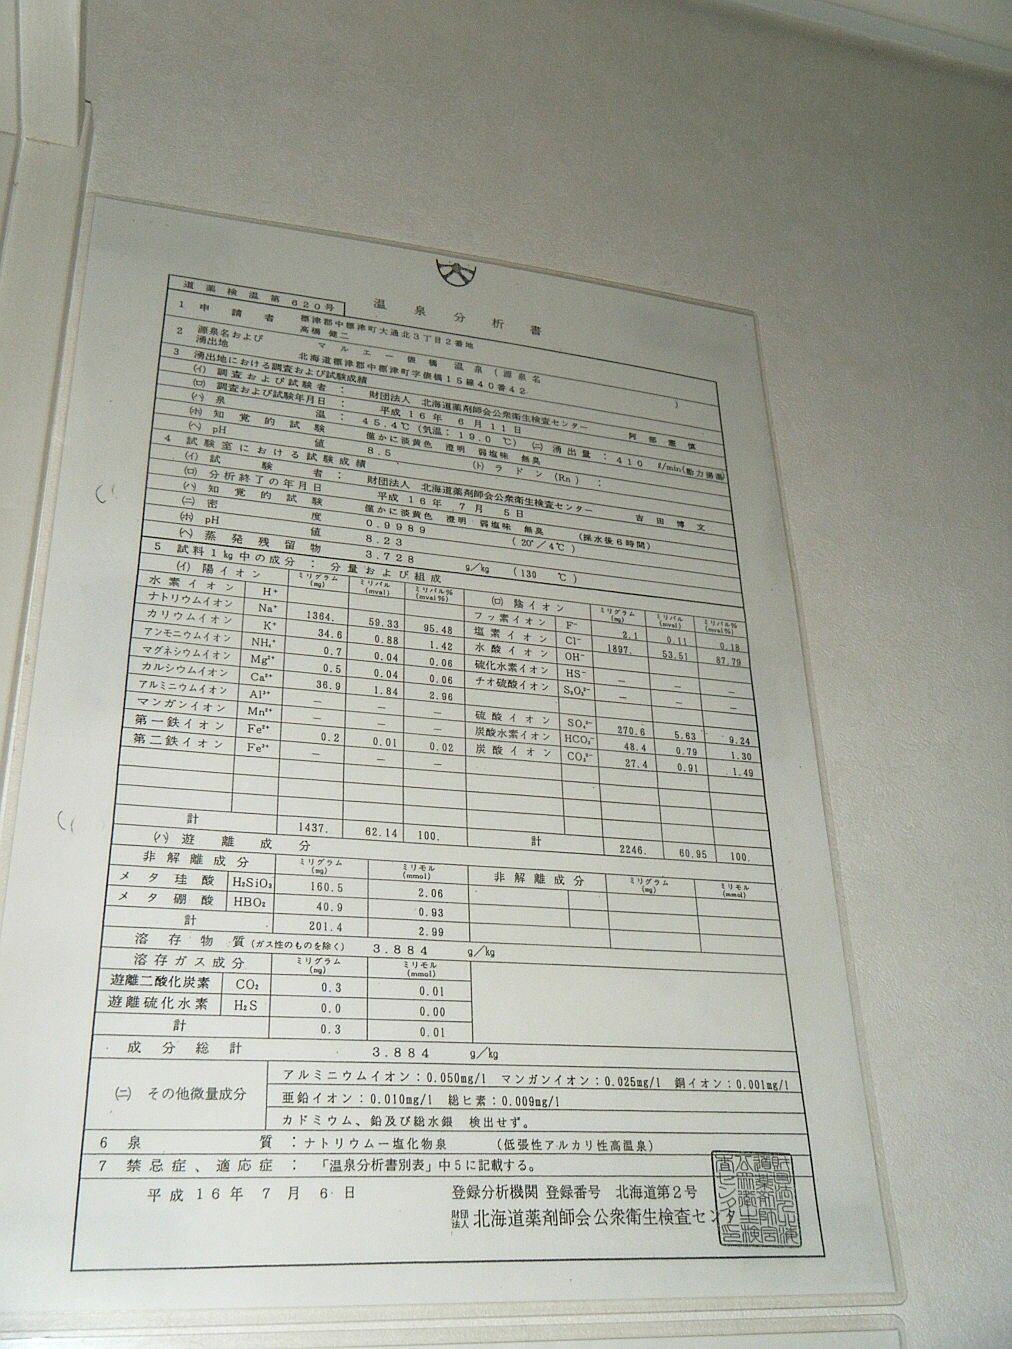 道薬検温第620号
温泉分析書
1 申請者 標津郡中標津町大通北3丁目2番地
高橋 健二
2 源泉名および湧出地 マルエー俵橋温泉(源泉名 )
北海道標津郡中標津町字俵橋15線40番42
3 湧出地における調査および試験成績
(イ) 調査および試験者: 財団法人 北海道薬剤師会公衆衛生検査センター 阿部憲慎
(ロ) 調査および試験年月日: 平成16年6月11日
(ハ) 泉温: 45.4℃(気温:19.0℃) (ニ) 湧出量: 410 ℓ/min(動力揚湯
(ホ) 知覚的試験 僅かに淡黄色 澄明 弱塩味 無臭
(ヘ) pH値 8.5 (ト) ラドン(Rn):
4 試験室における試験成績
(イ) 試験者: 財団法人 北海道薬剤師会公衆衛生検査センター 吉田博文
(ロ) 分析終了の年月日 平成16年7月5日
(ハ) 知覚的試験 僅かに淡黄色 澄明 弱塩味 無臭 (採水後6時間)
(ニ) 密度 0.9989 (20°/4℃)
(ホ) pH値 8.23
(ヘ) 蒸発残留物 3.728 g/kg (130 ℃)
5 試料1kg中の成分:分量および組成
(イ) 陽イオン ミリグラム(mg) ミリバル(mval) ミリバル%(mval%)
水素イオン H⁺
ナトリウムイオン Na⁺ 1364. 59.33 95.48
カリウムイオン K⁺ 34.6 0.88 1.42
アンモニウムイオン NH₄⁺ 0.7 0.04 0.06
マグネシウムイオン Mg²⁺ 0.5 0.04 0.06
カルシウムイオン Ca²⁺ 36.9 1.84 2.96
アルミニウムイオン Al³⁺ — — —
マンガンイオン Mn²⁺ — — —
第一鉄イオン Fe²⁺ 0.2 0.01 0.02
第二鉄イオン Fe³⁺ — — —
計 1437. 62.14 100.
(ロ) 陰イオン ミリグラム(mg) ミリバル(mval) ミリバル%(mval%)
フッ素イオン F⁻ 2.1 0.11 0.18
塩素イオン Cl⁻ 1897. 53.51 87.79
水酸イオン OH⁻ — — —
硫化水素イオン HS⁻ — — —
チオ硫酸イオン S₂O₃²⁻
硫酸イオン SO₄²⁻ 270.6 5.63 9.24
炭酸水素イオン HCO₃⁻ 48.4 0.79 1.30
炭酸イオン CO₃²⁻ 27.4 0.91 1.49
計 2246. 60.95 100.
(ハ) 遊離成分
非解離成分 ミリグラム(mg) ミリモル(mmol) 非解離成分 ミリグラム(mg) ミリモル(mmol)
メタ珪酸 H₂SiO₃ 160.5 2.06
メタ硼酸 HBO₂ 40.9 0.93
計 201.4 2.99
溶存物質(ガス性のものを除く) 3.884 g/kg
溶存ガス成分 ミリグラム(mg) ミリモル(mmol)
遊離二酸化炭素 CO₂ 0.3 0.01
遊離硫化水素 H₂S 0.0 0.00
計 0.3 0.01
成分総計 3.884 g/kg
(ニ) その他微量成分
アルミニウムイオン:0.050mg/l マンガンイオン:0.025mg/l 銅イオン:0.001mg/l
亜鉛イオン:0.010mg/l 総ヒ素:0.009mg/l
カドミウム、鉛及び総水銀 検出せず。
6 泉質:ナトリウム―塩化物泉 (低張性アルカリ性高温泉)
7 禁忌症、適応症: 「温泉分析書別表」中5に記載する。
平成16年7月6日
登録分析機関 登録番号 北海道第2号
財団法人 北海道薬剤師会公衆衛生検査センタ